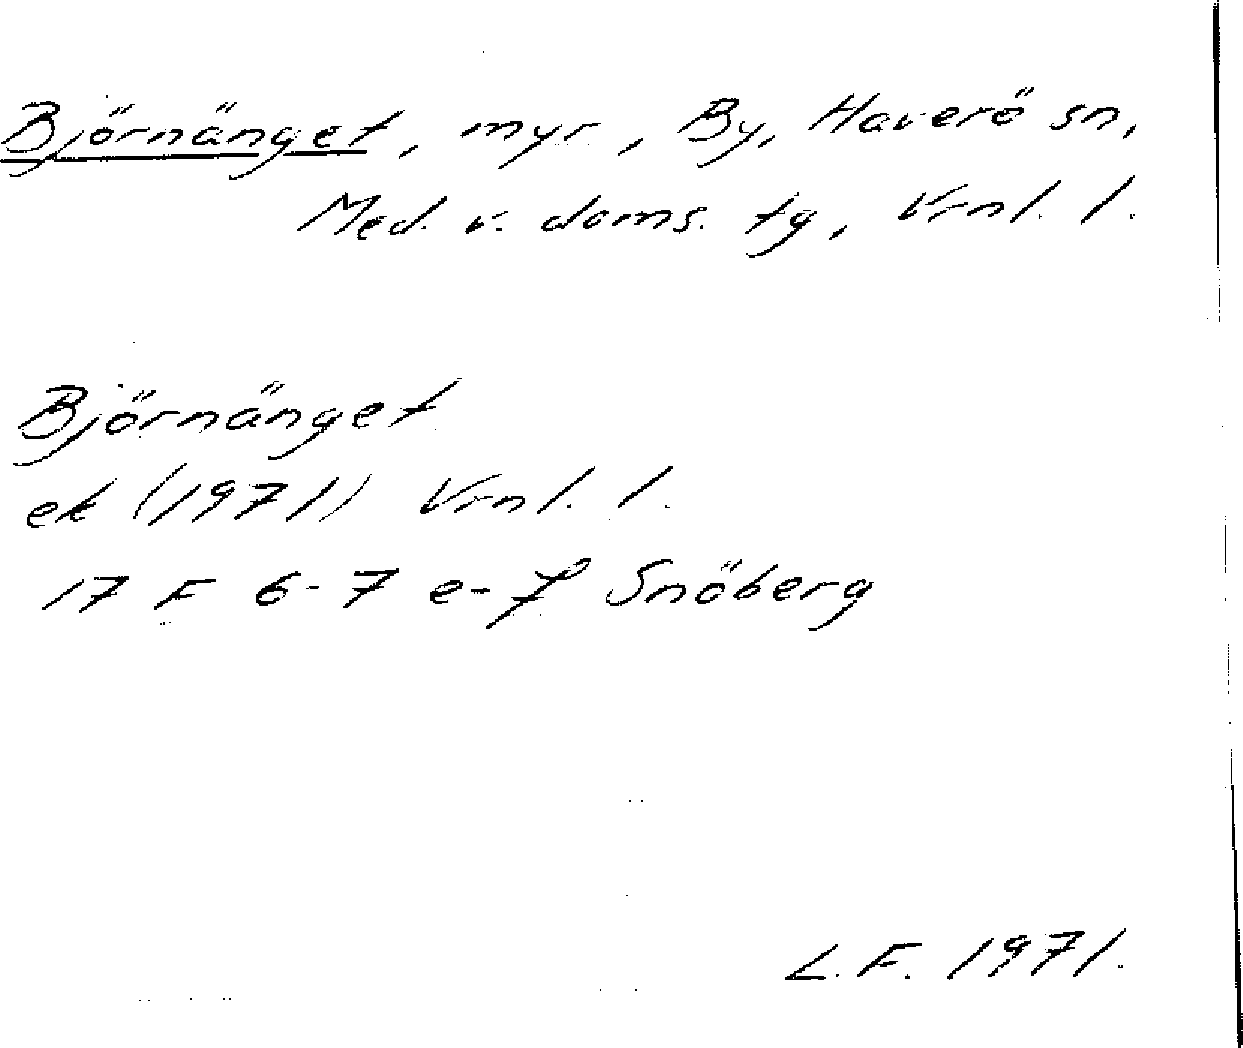 Björnänget, myr, By, Haverö sn,
Med. v. doms. tg, Vrnl. l.
Björnänget
ek (1971) Vrnl. l.
17 F 6-7 e-f Snöberg
L.F. 1971.